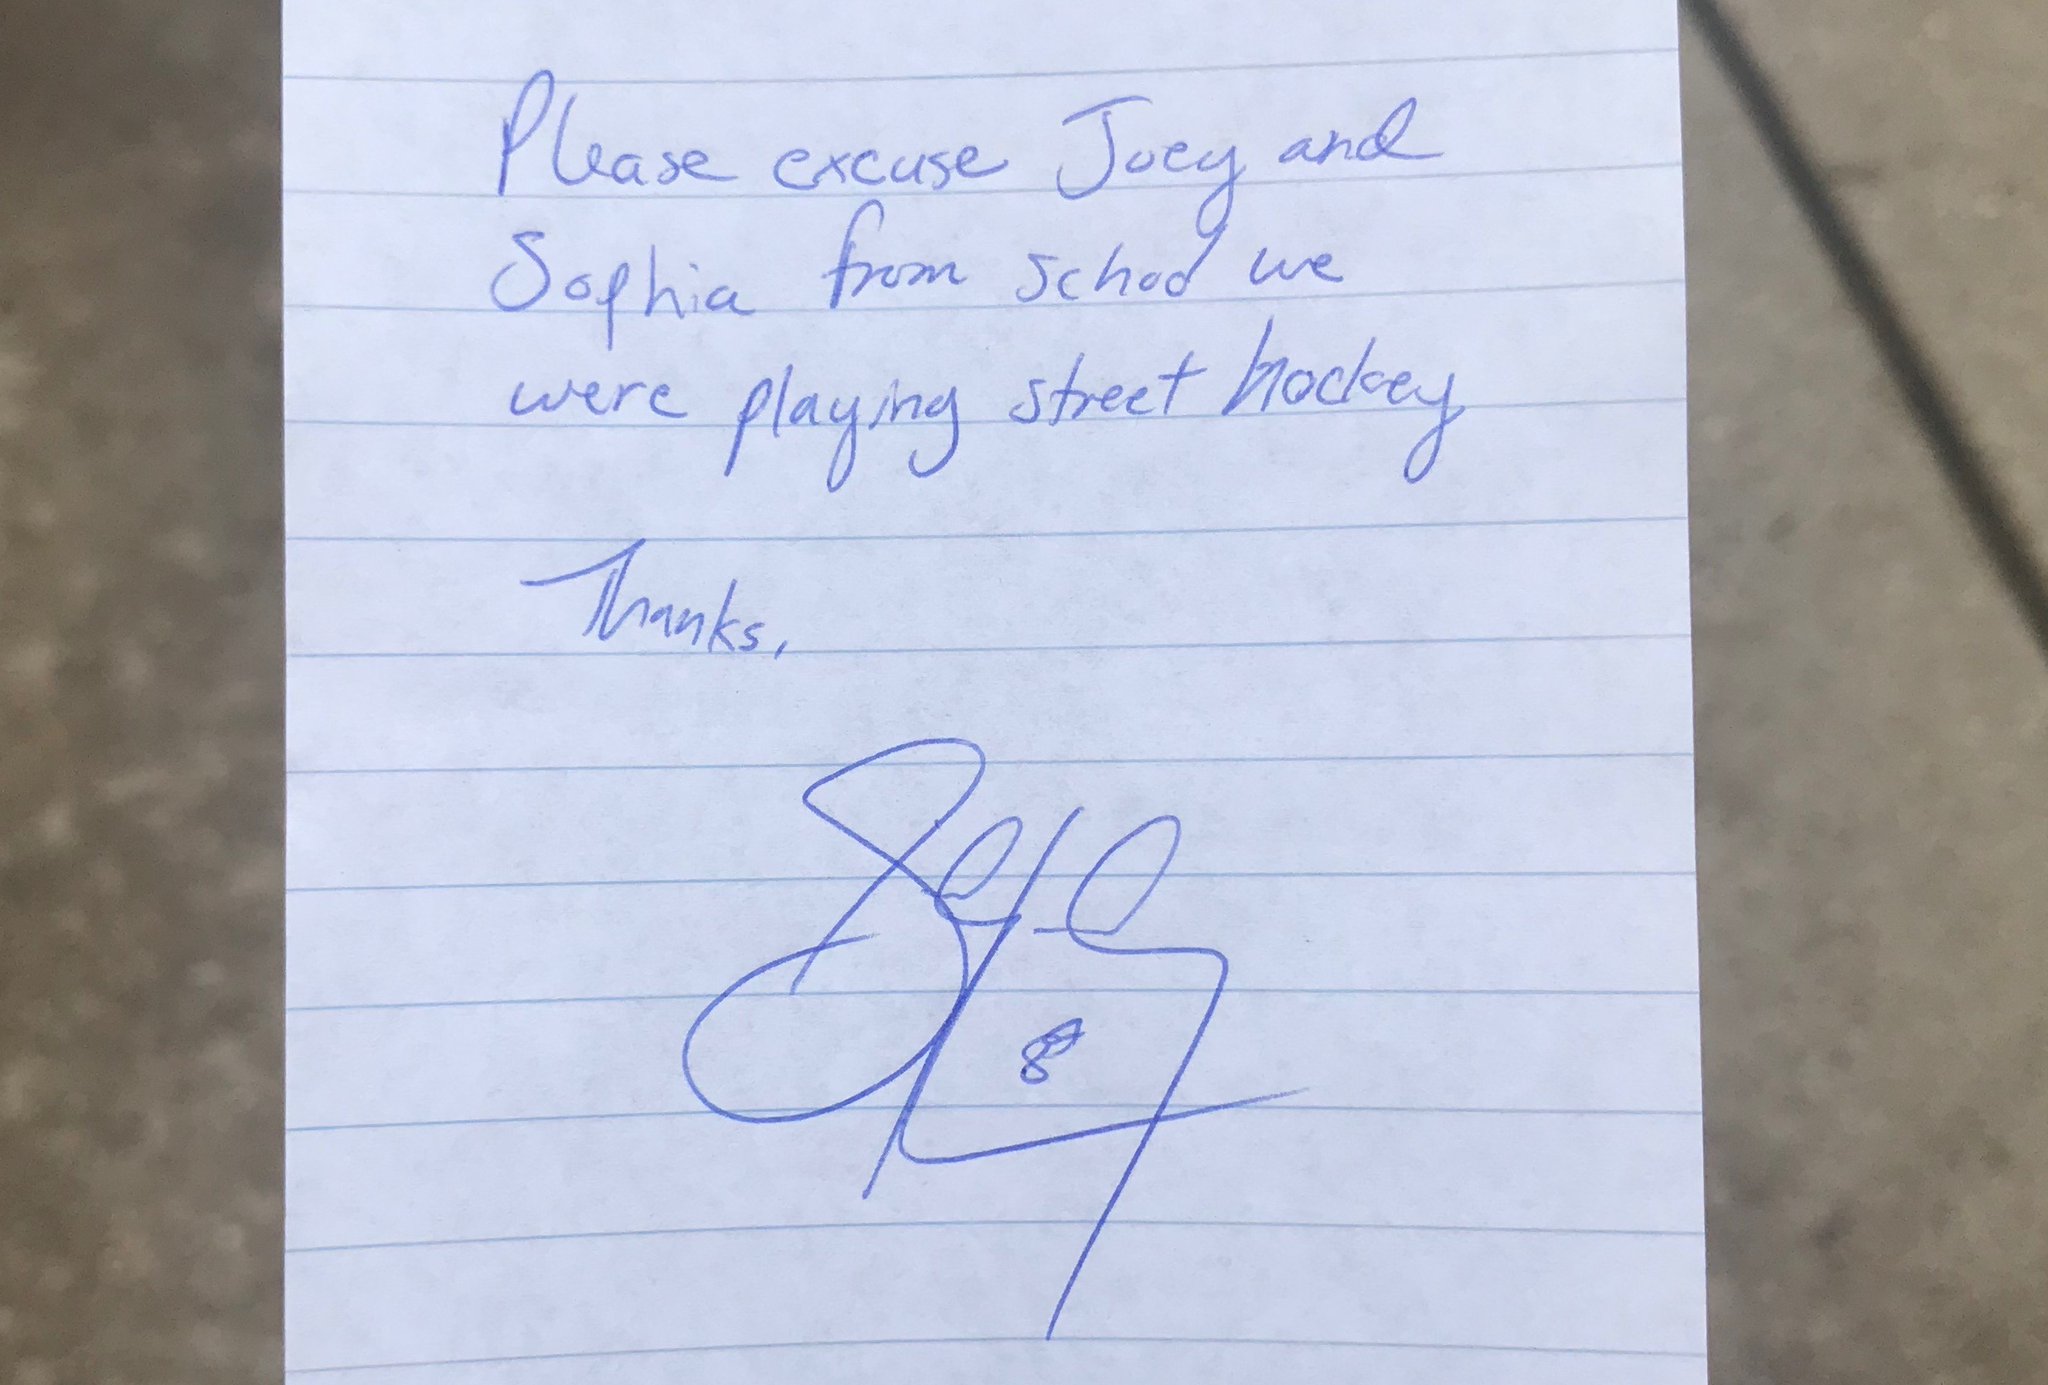 Please excuse Joey and
Sophia from school we
were playing street hockey
Thanks,
8